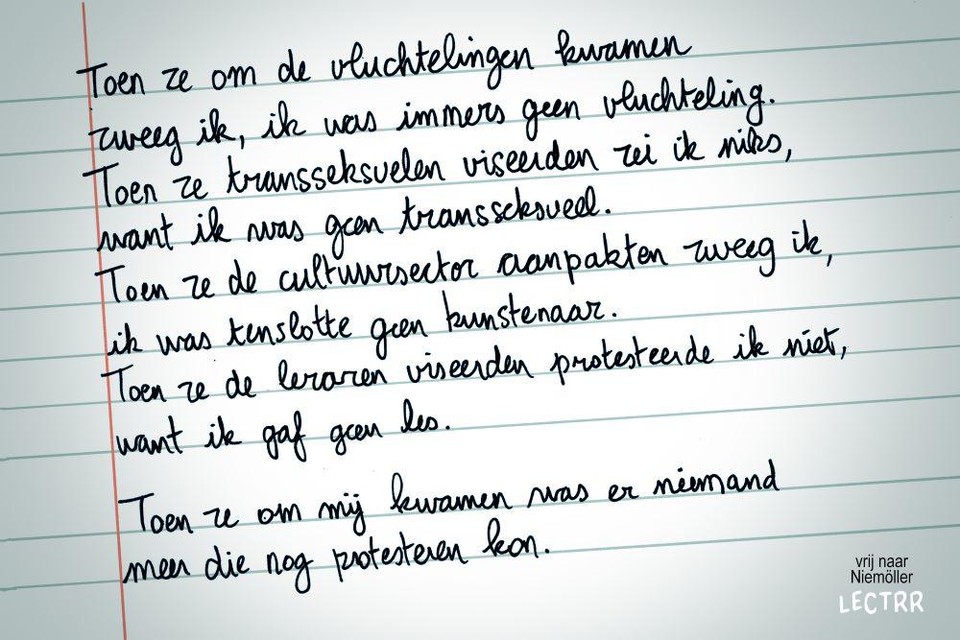 Toen ze om de vluchtelingen kwamen
zweeg ik, ik was immers geen vluchteling.
Toen ze transseksuelen viseerden zei ik niks,
want ik was geen transseksueel.
Toen ze de cultuursector aanpakten zweeg ik,
ik was tenslotte geen kunstenaar.
Toen ze de leraren viseerden protesteerde ik niet,
want ik gaf geen les.
Toen ze om mij kwamen was er niemand
meer die nog protesteren kon.
vrij naar
Niemöller
LECTRR